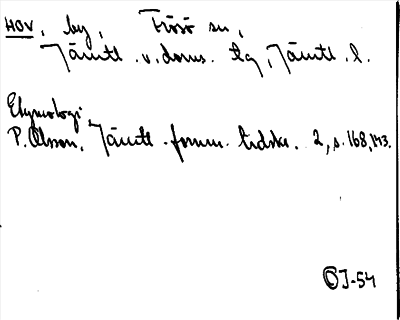 HOV, by, Frösö sn,
Jämtl. v. doms. tlg, Jämtl. l.
Etymologi.
P. Olsson, Jämtl. fornm. tidskr. 2, s. 168, 173.
ÖJ-54